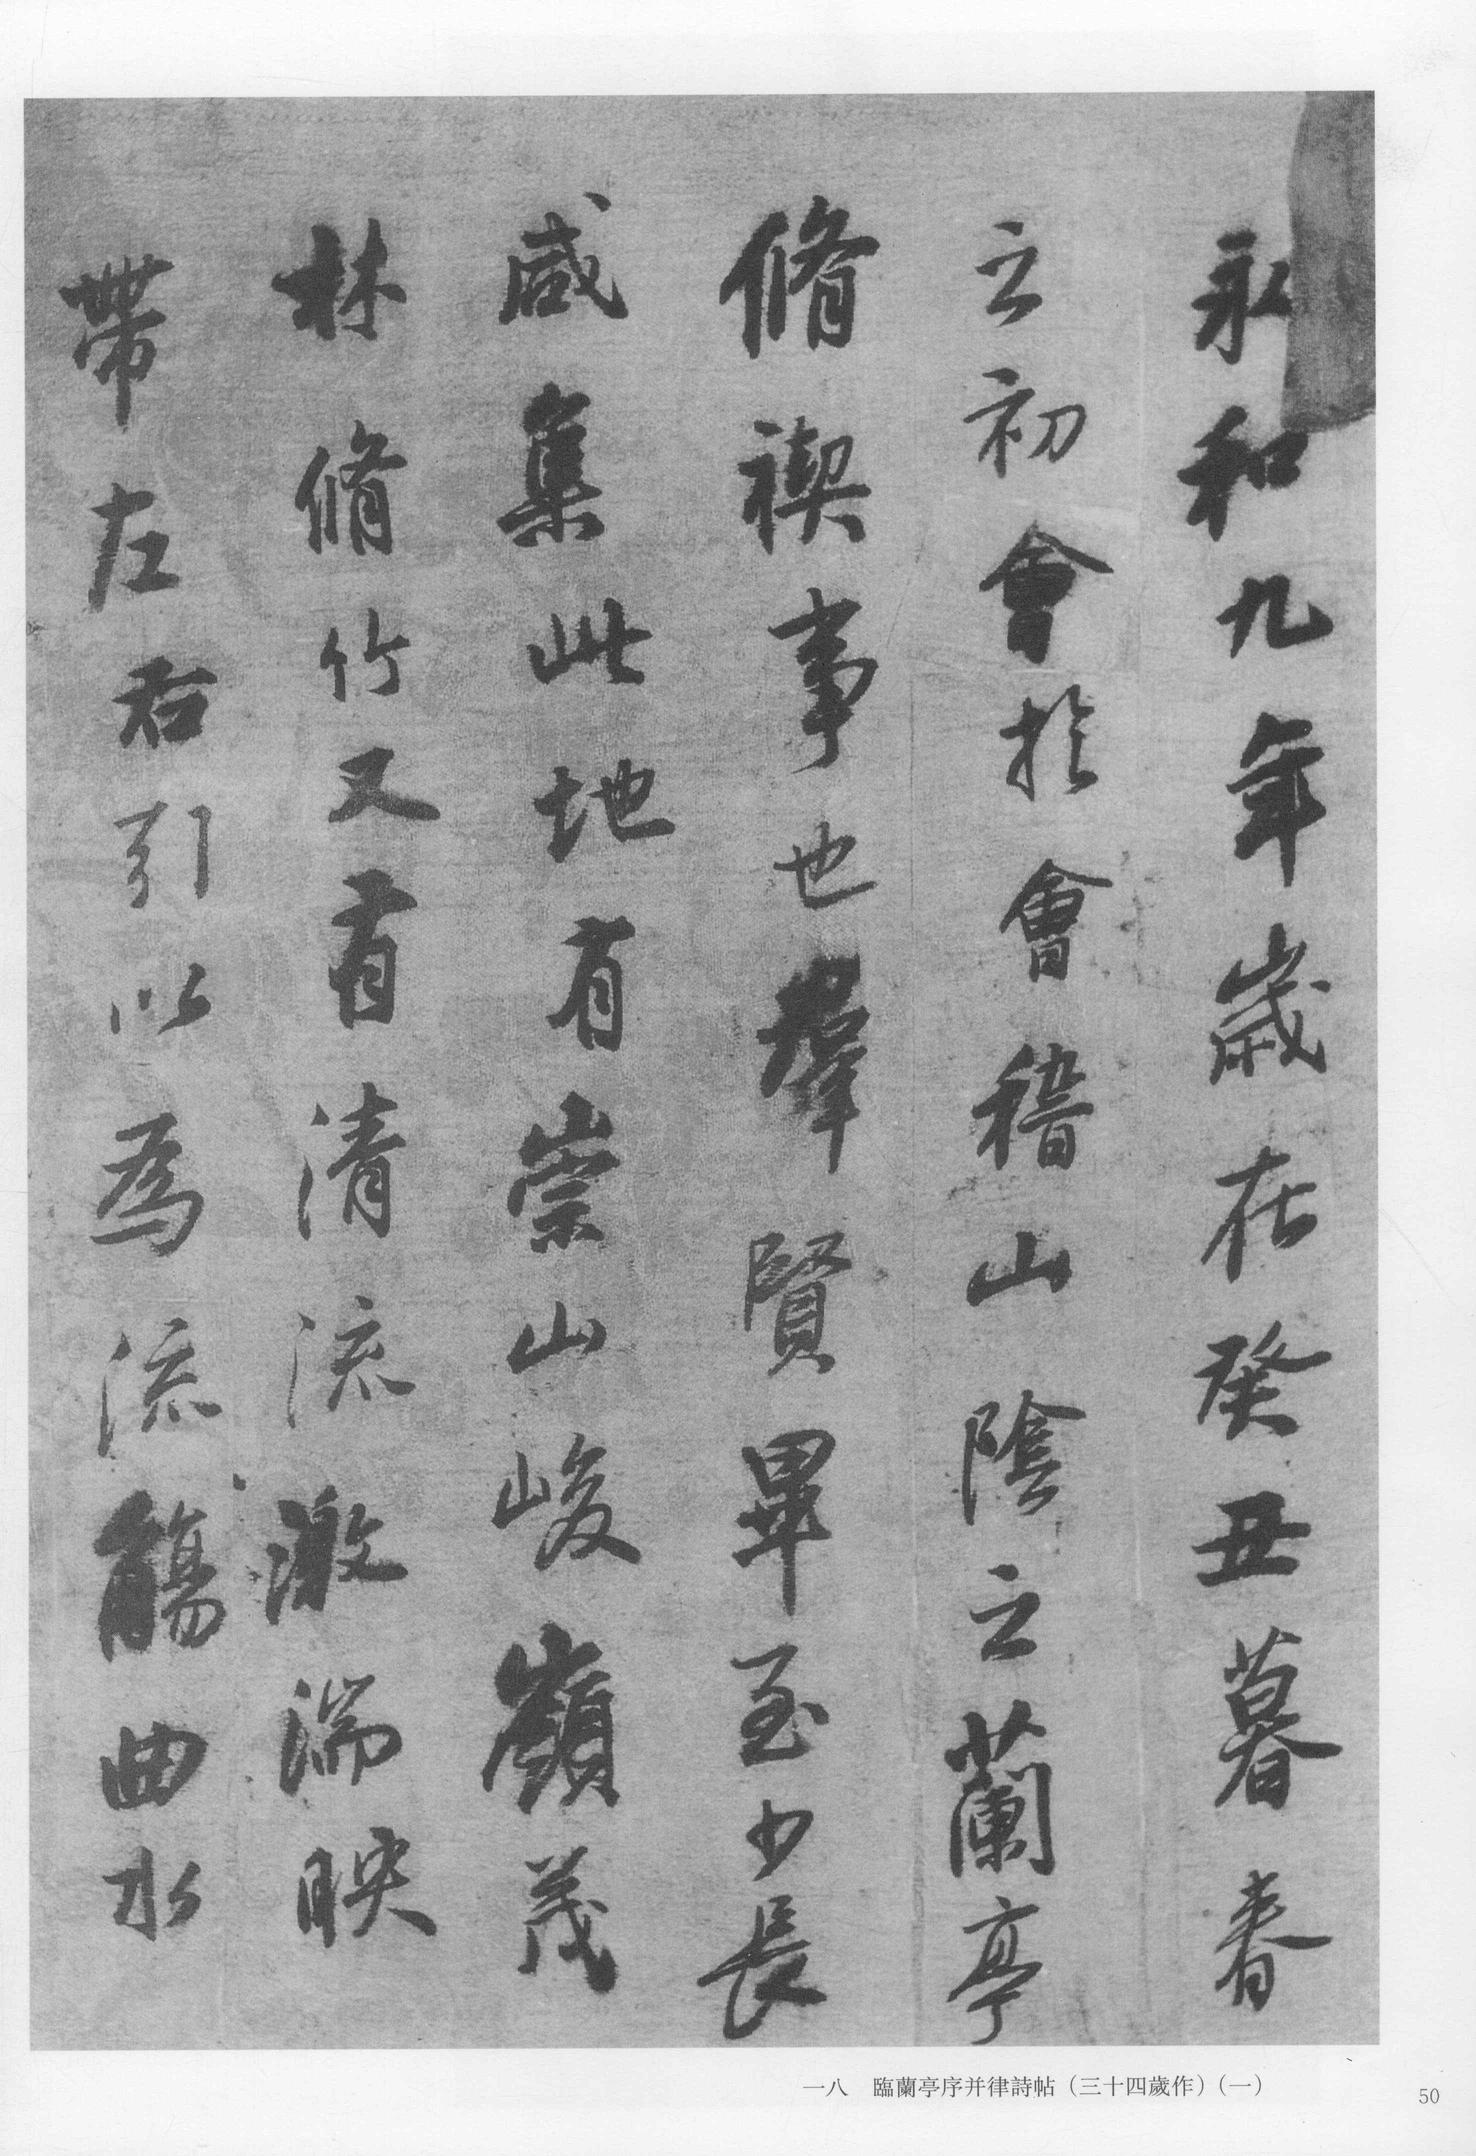 永和九年歲在癸丑暮春
之初會於會稽山陰之蘭亭
脩禊事也群賢畢至少長
咸集此地有崇山峻嶺茂
林脩竹又有清流激湍映
帶左右引以為流觴曲水
一八　臨蘭亭序并律詩帖（三十四歲作）（一）
50